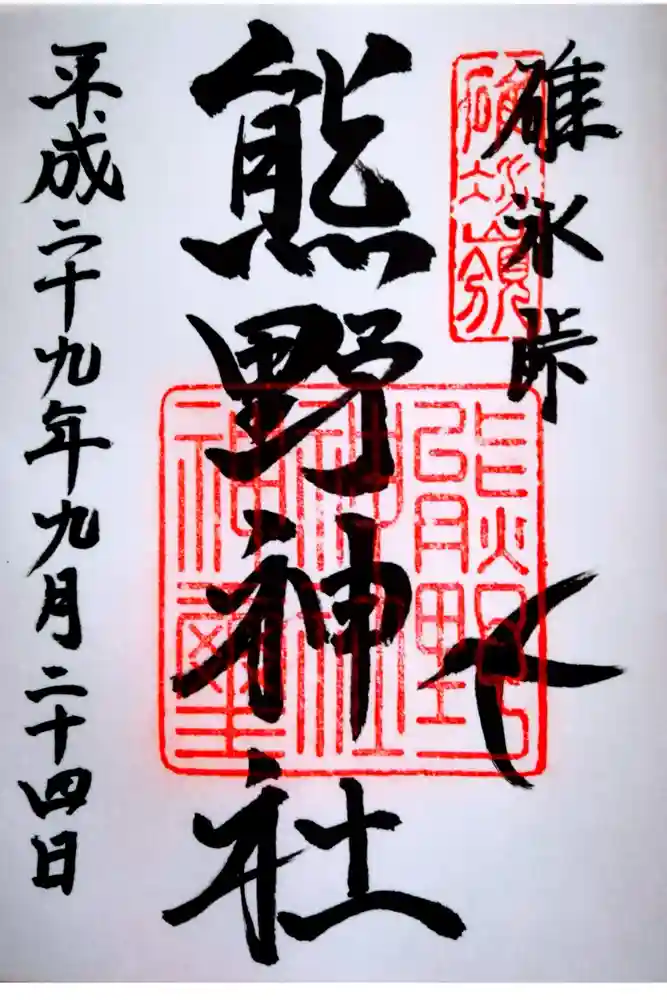 碓氷峠
碓氷嶺
熊野神社
熊野
神社
神璽
平成二十九年九月二十四日